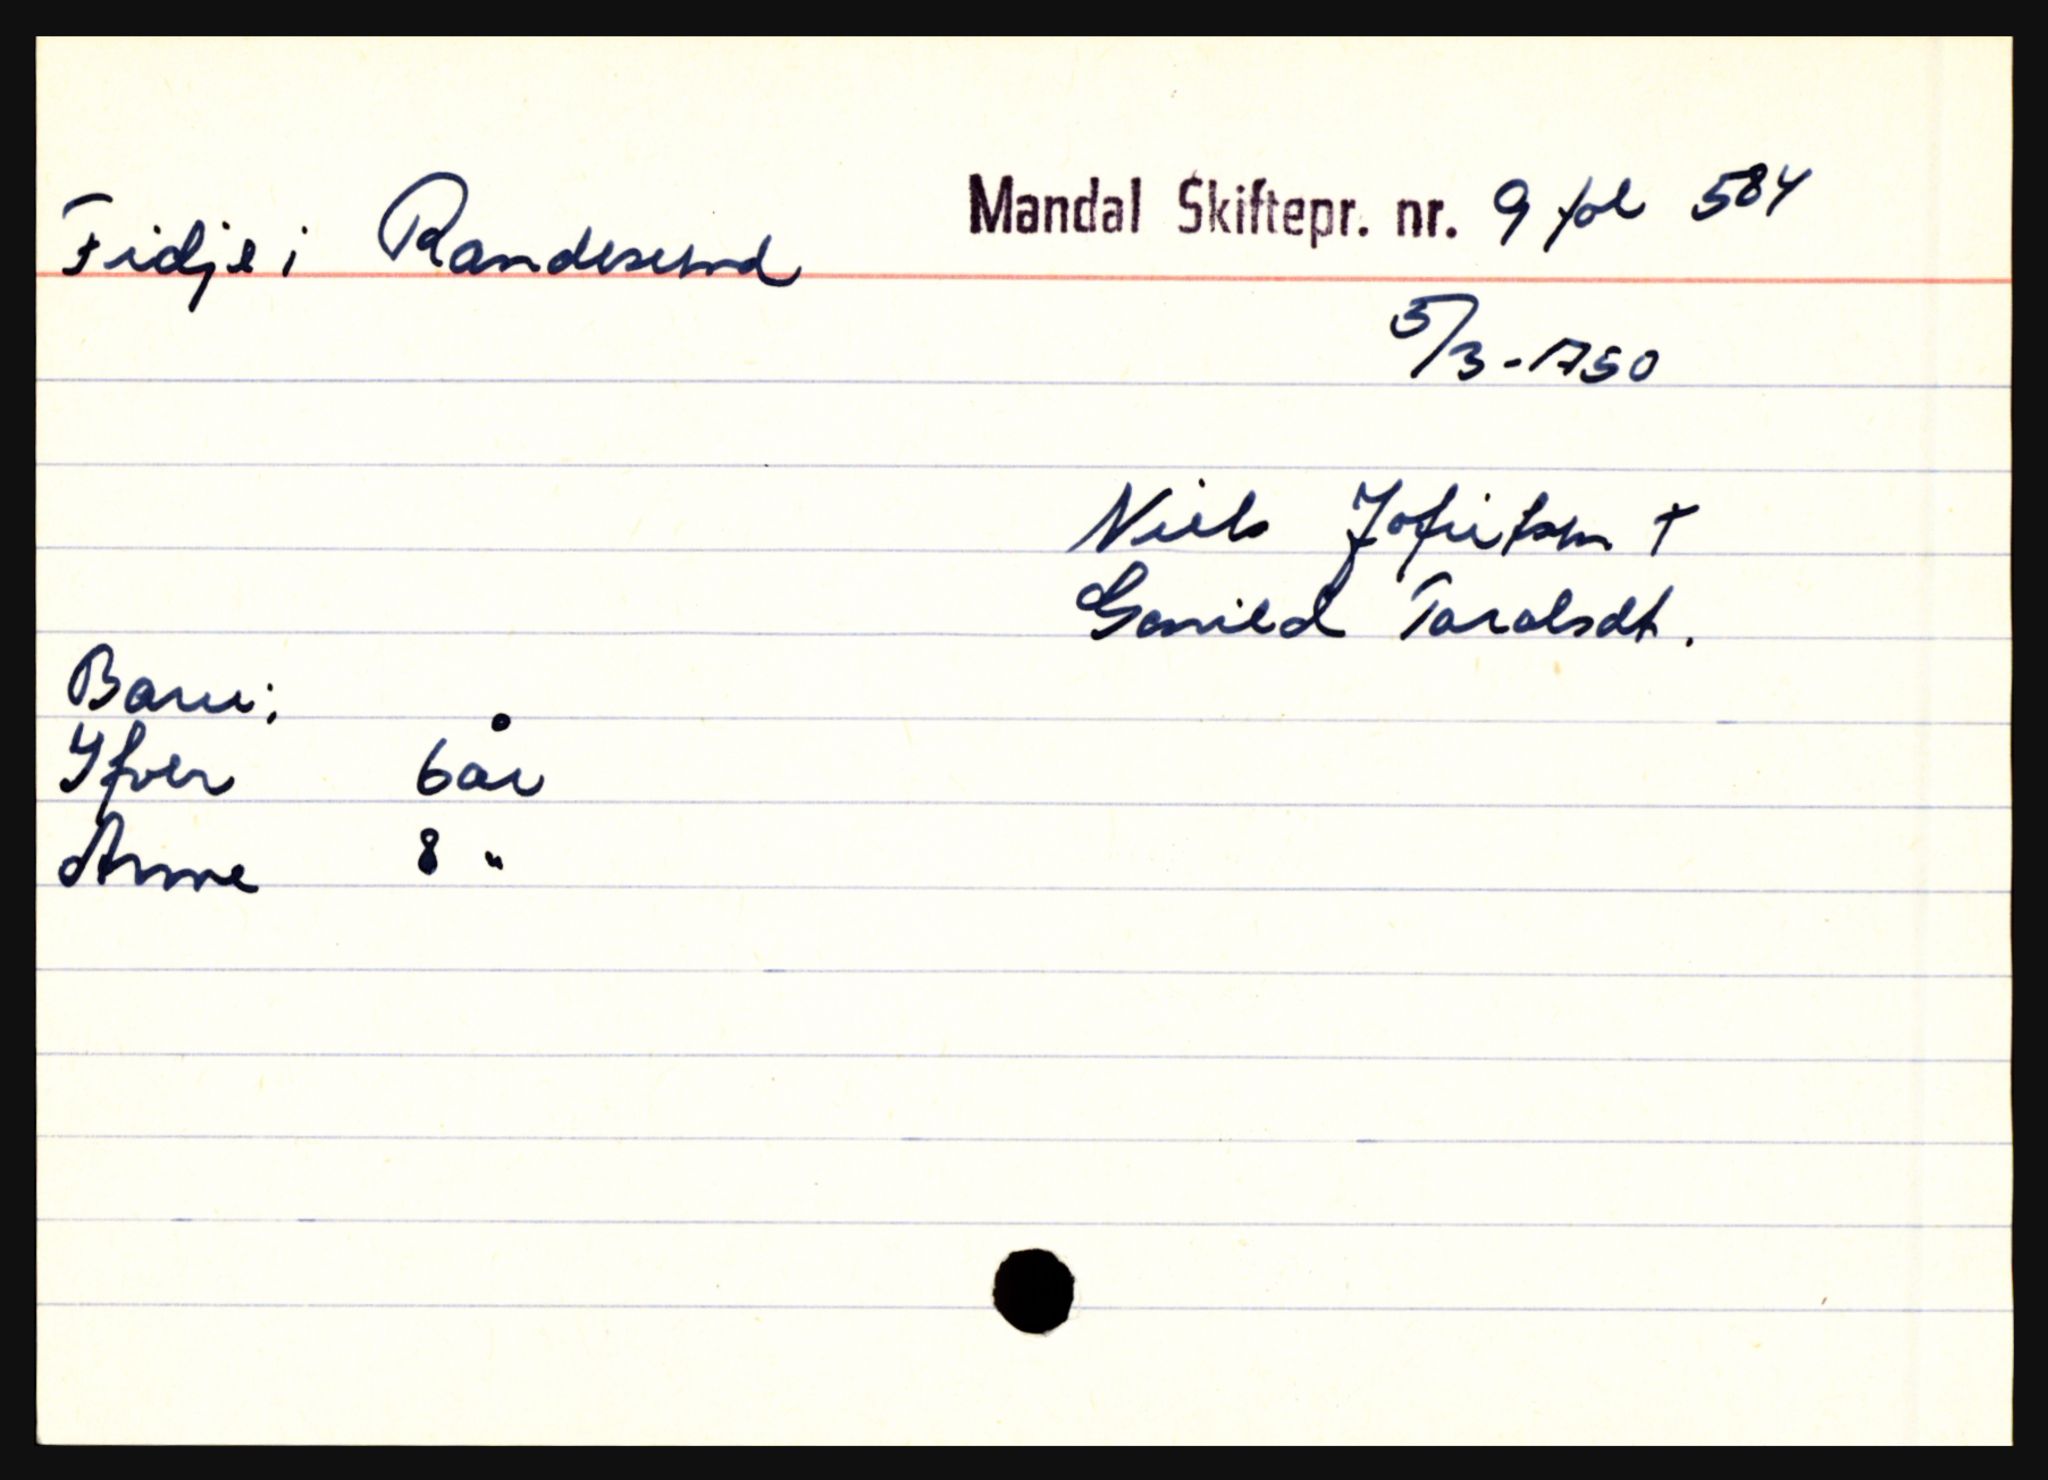 Fidje i Randesund
Mandal Skiftepr. nr. 9 fol 584
5/3-1750
Niels Jofritsen †
Gonild Taralsdt.
Barn:
Ifver 6 år
Anne 8 "